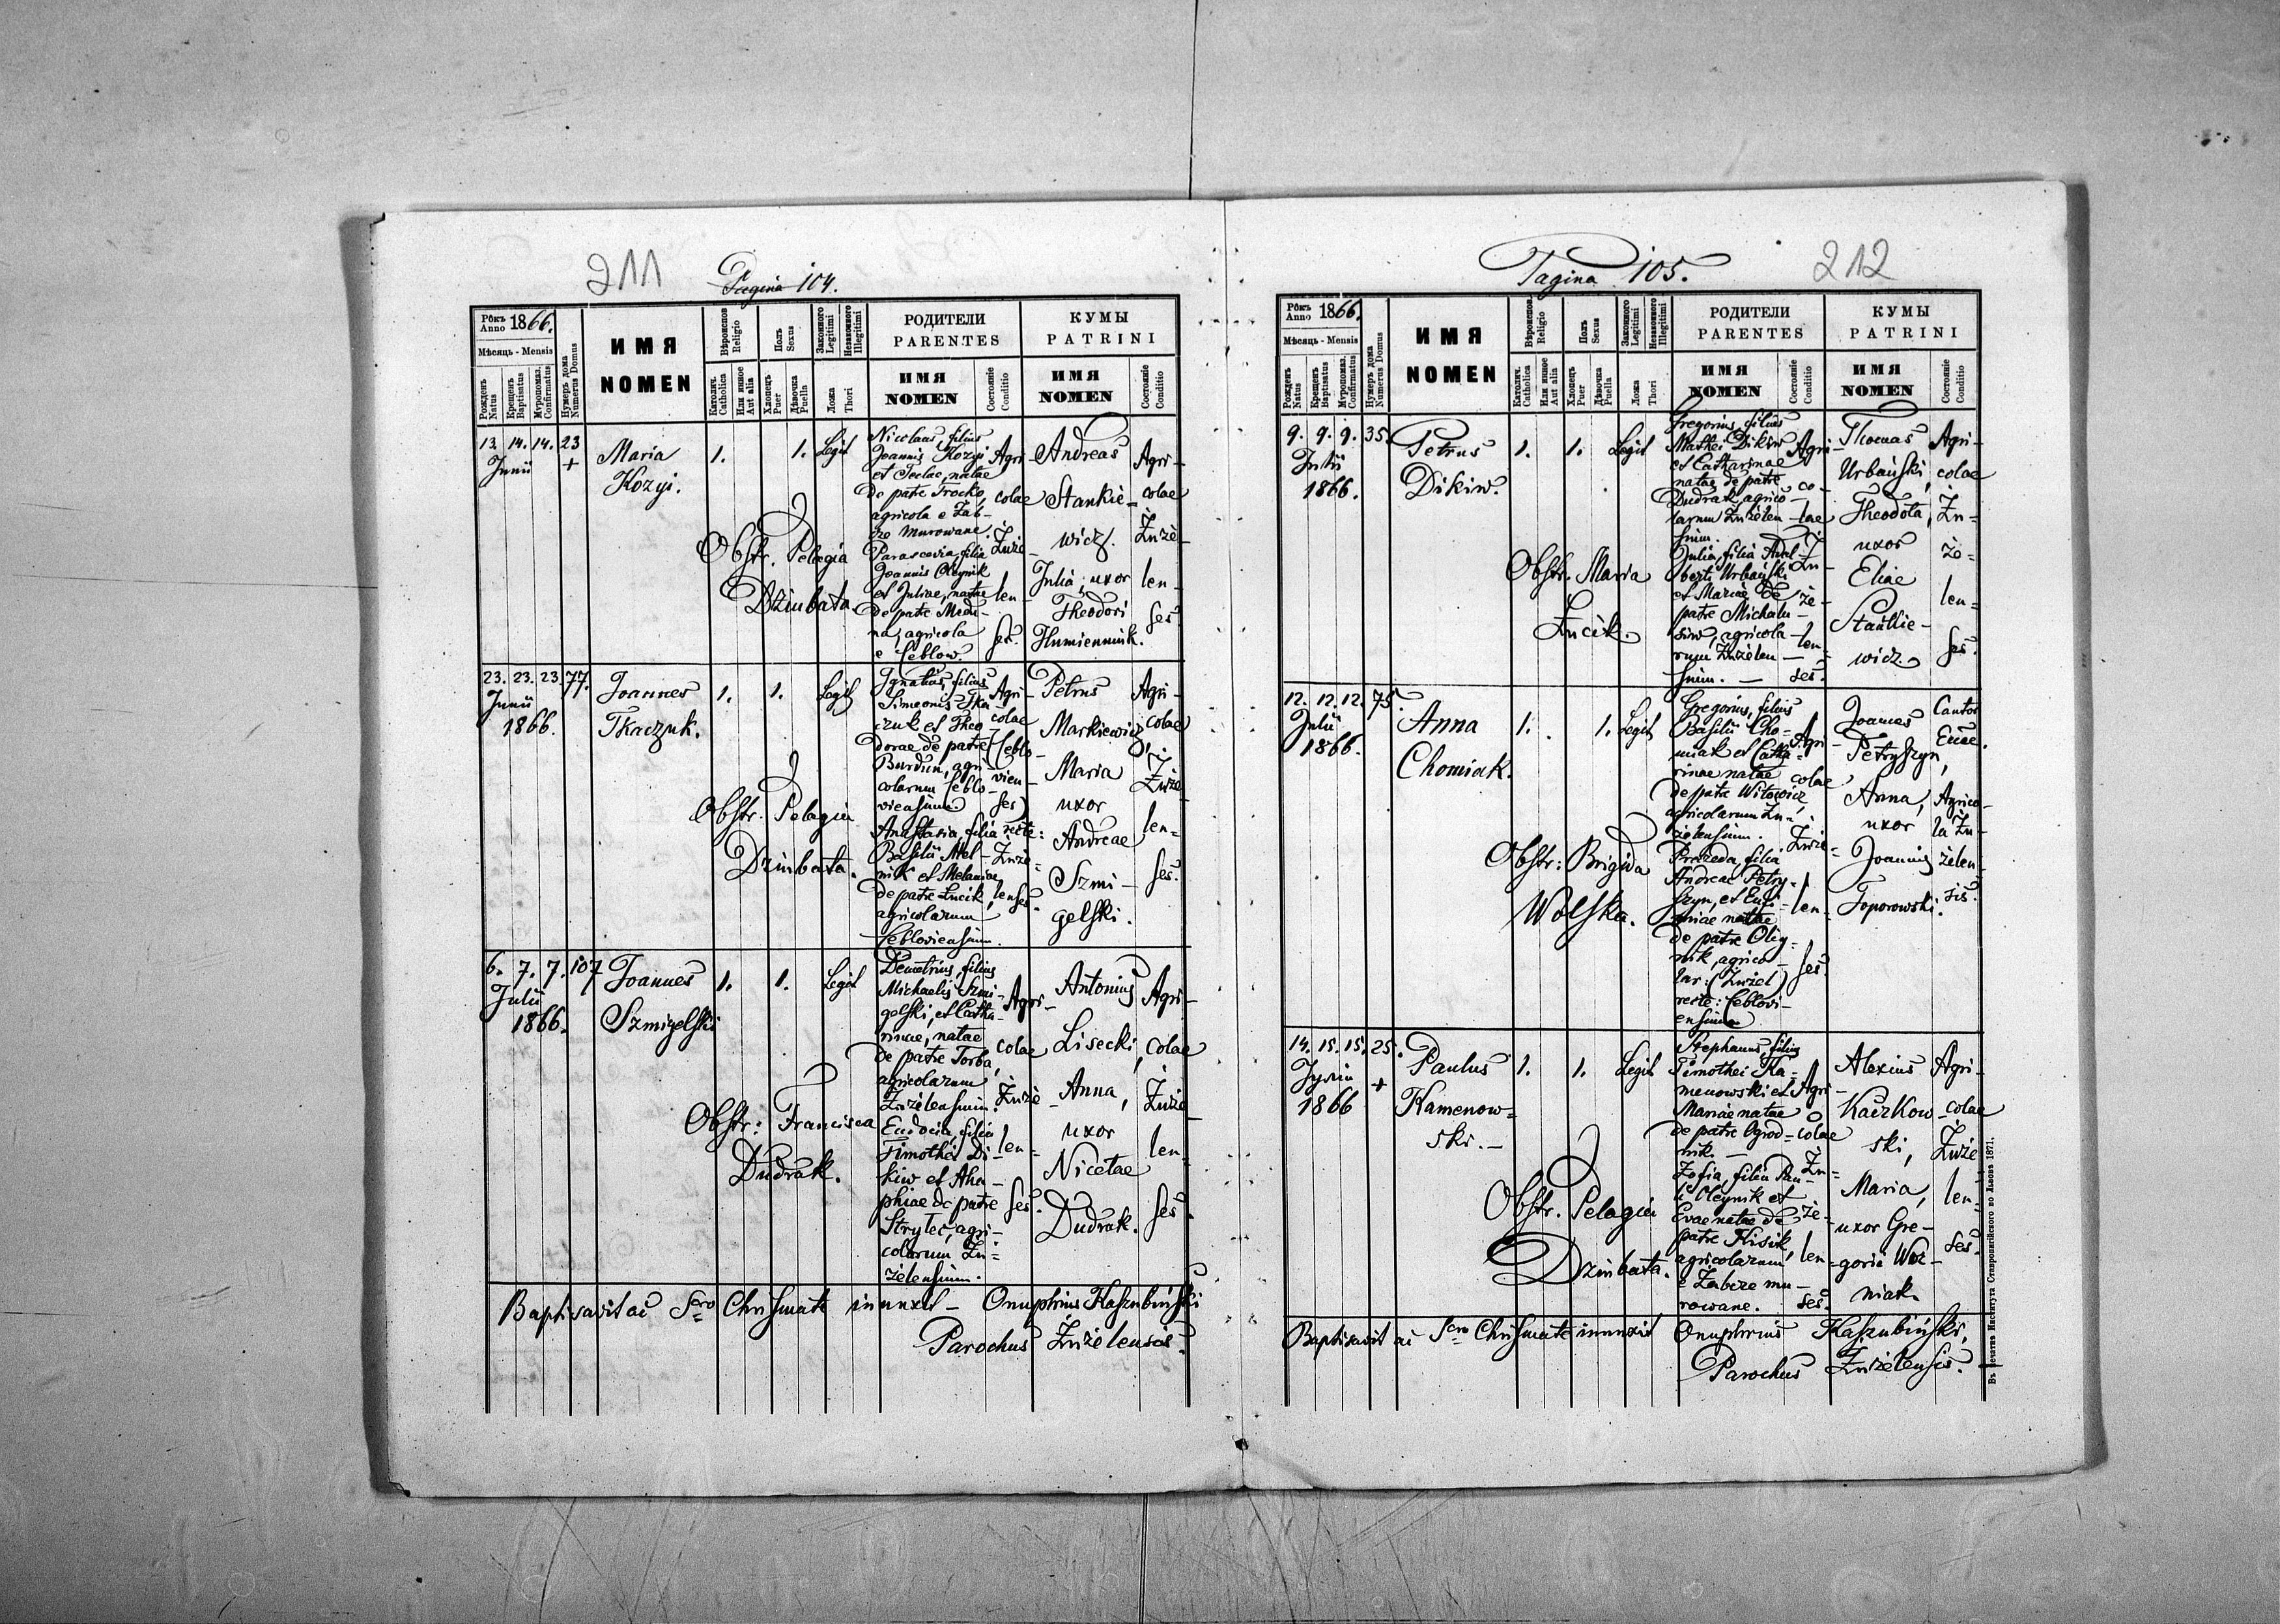 211
Pagina 104.
Рокъ Anno 1866.
Мѣсяць - Mensis
Рожденъ Natus
Крещенъ Baptisatus
Мѵропомаз. Confirmatus
Нумеръ дома Numerus Domus
ИМЯ
NOMEN
Вѣроиспов. Religio
Католич. Catholica
Или инное Aut alia
Полъ Sexus
Хлопецъ Puer
Дѣвочка Puella
Законного Legitimi
Незаконного Illegitimi
Ложа Thori
РОДИТЕЛИ
PARENTES
ИМЯ
NOMEN
Состояніе Conditio
КУМЫ
PATRINI
ИМЯ
NOMEN
Состояніе Conditio
13. 14. 14. 23
Junii +
Maria
Kozyi.
1. 1. Legit
Obstr. Pelagia
Dzinbata.
Nicolaus, filius
Joannis Kozyi
et Teclae, natae
de patre Trocko,
agricola e Zab-
ze murowane.
Parascevia, filia
Joannis Oleynik
et Juliae, natae
de patre Medu-
na, agricola
e Ceblow.
Agri-
colae
Żuże-
len-
ses.
Andreas
Stankie-
wicz.
Julia, uxor
Theodori
Humienniuk.
Agri-
colae
Żuże-
len-
ses.
23. 23. 23. 77.
Junii
1866.
Joannes
Tkaczuk.
1. 1. Legit
Obstr. Pelagia
Dzinbata.
Ignatius, filius
Simeonis Tka
czuk et Theo
dorae de patre
Burdun, agri-
colarum Ceblo-
viensium.
Anastasia, filia
Basilii Mel-
nik et Melaniae
de patre Lucik,
agricolarum
Cebloviensium.
Agri-
colae
(Ceblo-
vien-
ses)
recte:
Żuże-
lenses.
Petrus
Markiewicz,
Maria
uxor
Andreae
Szmi-
gelski.
Agri-
colae
Żuże-
len-
ses.
6. 7. 7. 107
Julii
1866.
Joannes
Szmigelski
1. 1. Legit
Obstr: Francisca
Dudrak.
Demetrius, filius
Michaelis Szmi-
gelski, et Catha-
rinae, natae
de patre Torba,
agricolarum
Żużelensium.
Eudocia, filia
Timothei Di-
kiw et Aha-
phiae de patre
Strylec, agri-
colarum Żu-
żelensium.
Agri-
colae
Żuże
len-
ses.
Antonius
Lisecki,
Anna,
uxor
Nicetae
Dudrak.
Agri-
colae
Żuże
len-
ses.
Baptisavit ac Scro Chrismate inunxit - Onuphrius Kaszubiński
Parochus Żużelensis.
Pagina 105.
212
Рокъ Anno 1866.
Мѣсяць - Mensis
Рожденъ Natus
Крещенъ Baptisatus
Мѵропомаз. Confirmatus
Нумеръ дома Numerus Domus
ИМЯ
NOMEN
Вѣроиспов. Religio
Католич. Catholica
Или инное Aut alia
Полъ Sexus
Хлопецъ Puer
Дѣвочка Puella
Законного Legitimi
Незаконного Illegitimi
Ложа Thori
РОДИТЕЛИ
PARENTES
ИМЯ
NOMEN
Состояніе Conditio
КУМЫ
PATRINI
ИМЯ
NOMEN
Состояніе Conditio
9. 9. 9. 35.
Julii
1866.
Petrus
Dikiw.
1. 1. Legit
Obstr. Maria
Lucik.
Gregorius, filius
Mathei Dikiw
et Catharinae
natae de patre
Dudrak, agrico-
larum Żużelen-
sium.
Julia, filia Adal-
berti Urbański
et Mariae de
patre Michalu-
siw, agricola-
rum Żużelen-
sium. -
Agri-
co-
lae
Żu-
że-
len-
ses.
Thomas
Urbański,
Theodota,
uxor
Eliae
Stankie-
wicz.
Agri-
colae
Żu-
że-
len-
ses.
12. 12. 12. 75.
Julii
1866.
Anna
Chomiak.
1. 1. Legit
Obstr: Brigida
Wolska.
Gregorius, filius
Basilii Cho-
miak et Catha-
rinae natae
de patre Witowicz
agricolarum Żu-
żelensium.
Praxeda, filia
Andreae Petry-
szyn, et Eufe-
miae natae
de patre Oley-
nik, agrico-
lar: (Żużel)
recte:Ceblowi-
ensium
Agri-
colae
Żuże-
len-
ses.
Joannes
Petryszyn,
Anna,
uxor
Joannis
Toporowski.
Cantor
Eccae.
Agrico-
la Żu-
żelen-
sis.
14. 15. 15. 25.
+
1866
Paulus
Kamenow-
ski. -
1. 1. Legit
Obstr. Pelagia
Dzinbata.
Stephanus, filius
Timothei Ka-
menowski et
Mariae natae
de patre Ogrod-
nik. -
Zofia, filia Pau-
li Oleynik et
Evae natae de
patre Kisik,
agricolarum
e Zabcze mu-
rowane.
Agri-
colae
Żu-
że-
len-
ses.
Alexius
Kaczkow-
ski,
Maria,
uxor Gre-
gorii Woz-
niak.
Agri-
colae
Żuże
len-
ses.
Baptisavit ac Scro Chrismate inunxit Onuphrius Kaszubiński,
Parochus Żużelensis.
Въ печатнѣ Института Ставропигійского во Львовѣ 1871.